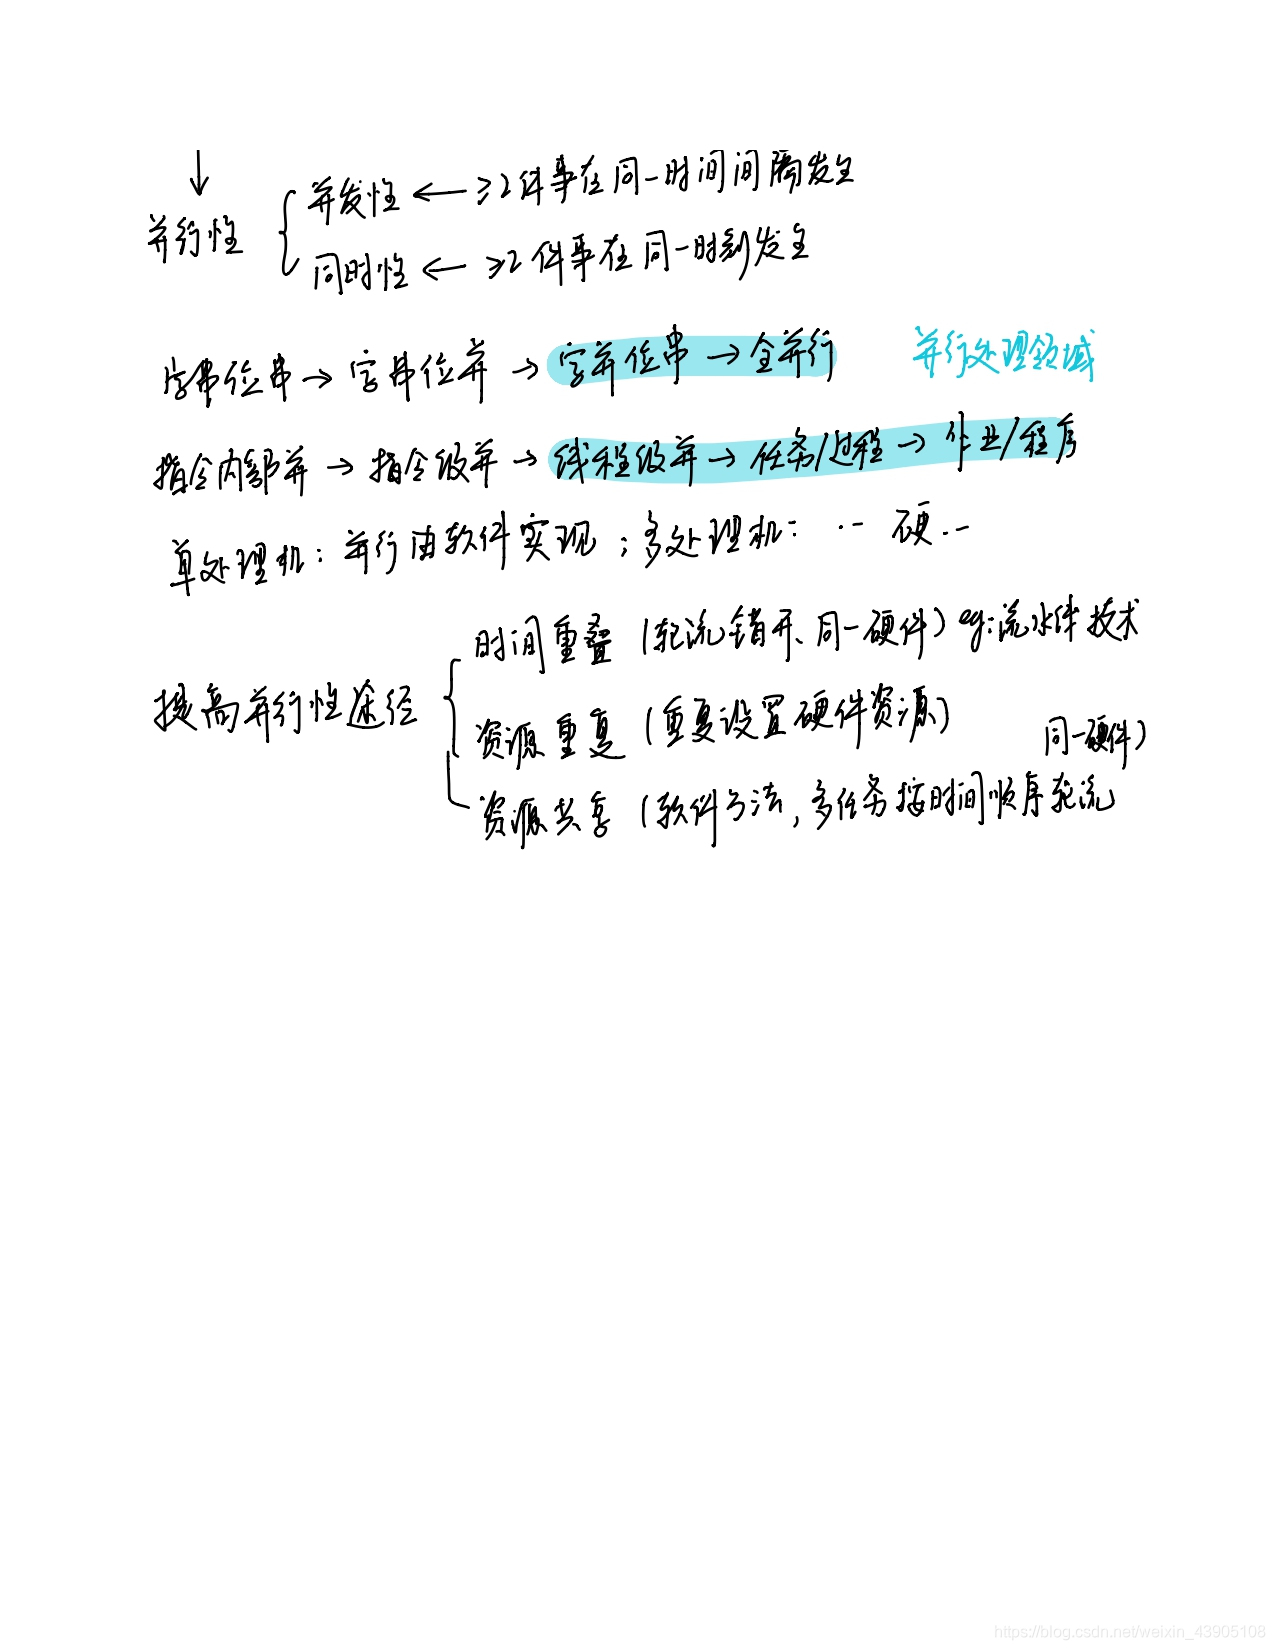 ↓
并行性 { 并发性 ← ≥2件事在同一时间间隔发生
同时性 ← ≥2件事在同一时刻发生
字串位串 → 字串位并 → 字并位串 → 全并行 并行处理领域
指令内部并 → 指令级并 → 线程级并 → 任务/过程 → 作业/程序
单处理机: 并行由软件实现; 多处理机: ·· 硬··
提高并行性途径 { 时间重叠 (轮流错开、同一硬件) eg:流水线技术
资源重复 (重复设置硬件资源)
资源共享 (软件方法, 多任务按时间顺序轮流
同一硬件)
https://blog.csdn.net/weixin_43905108